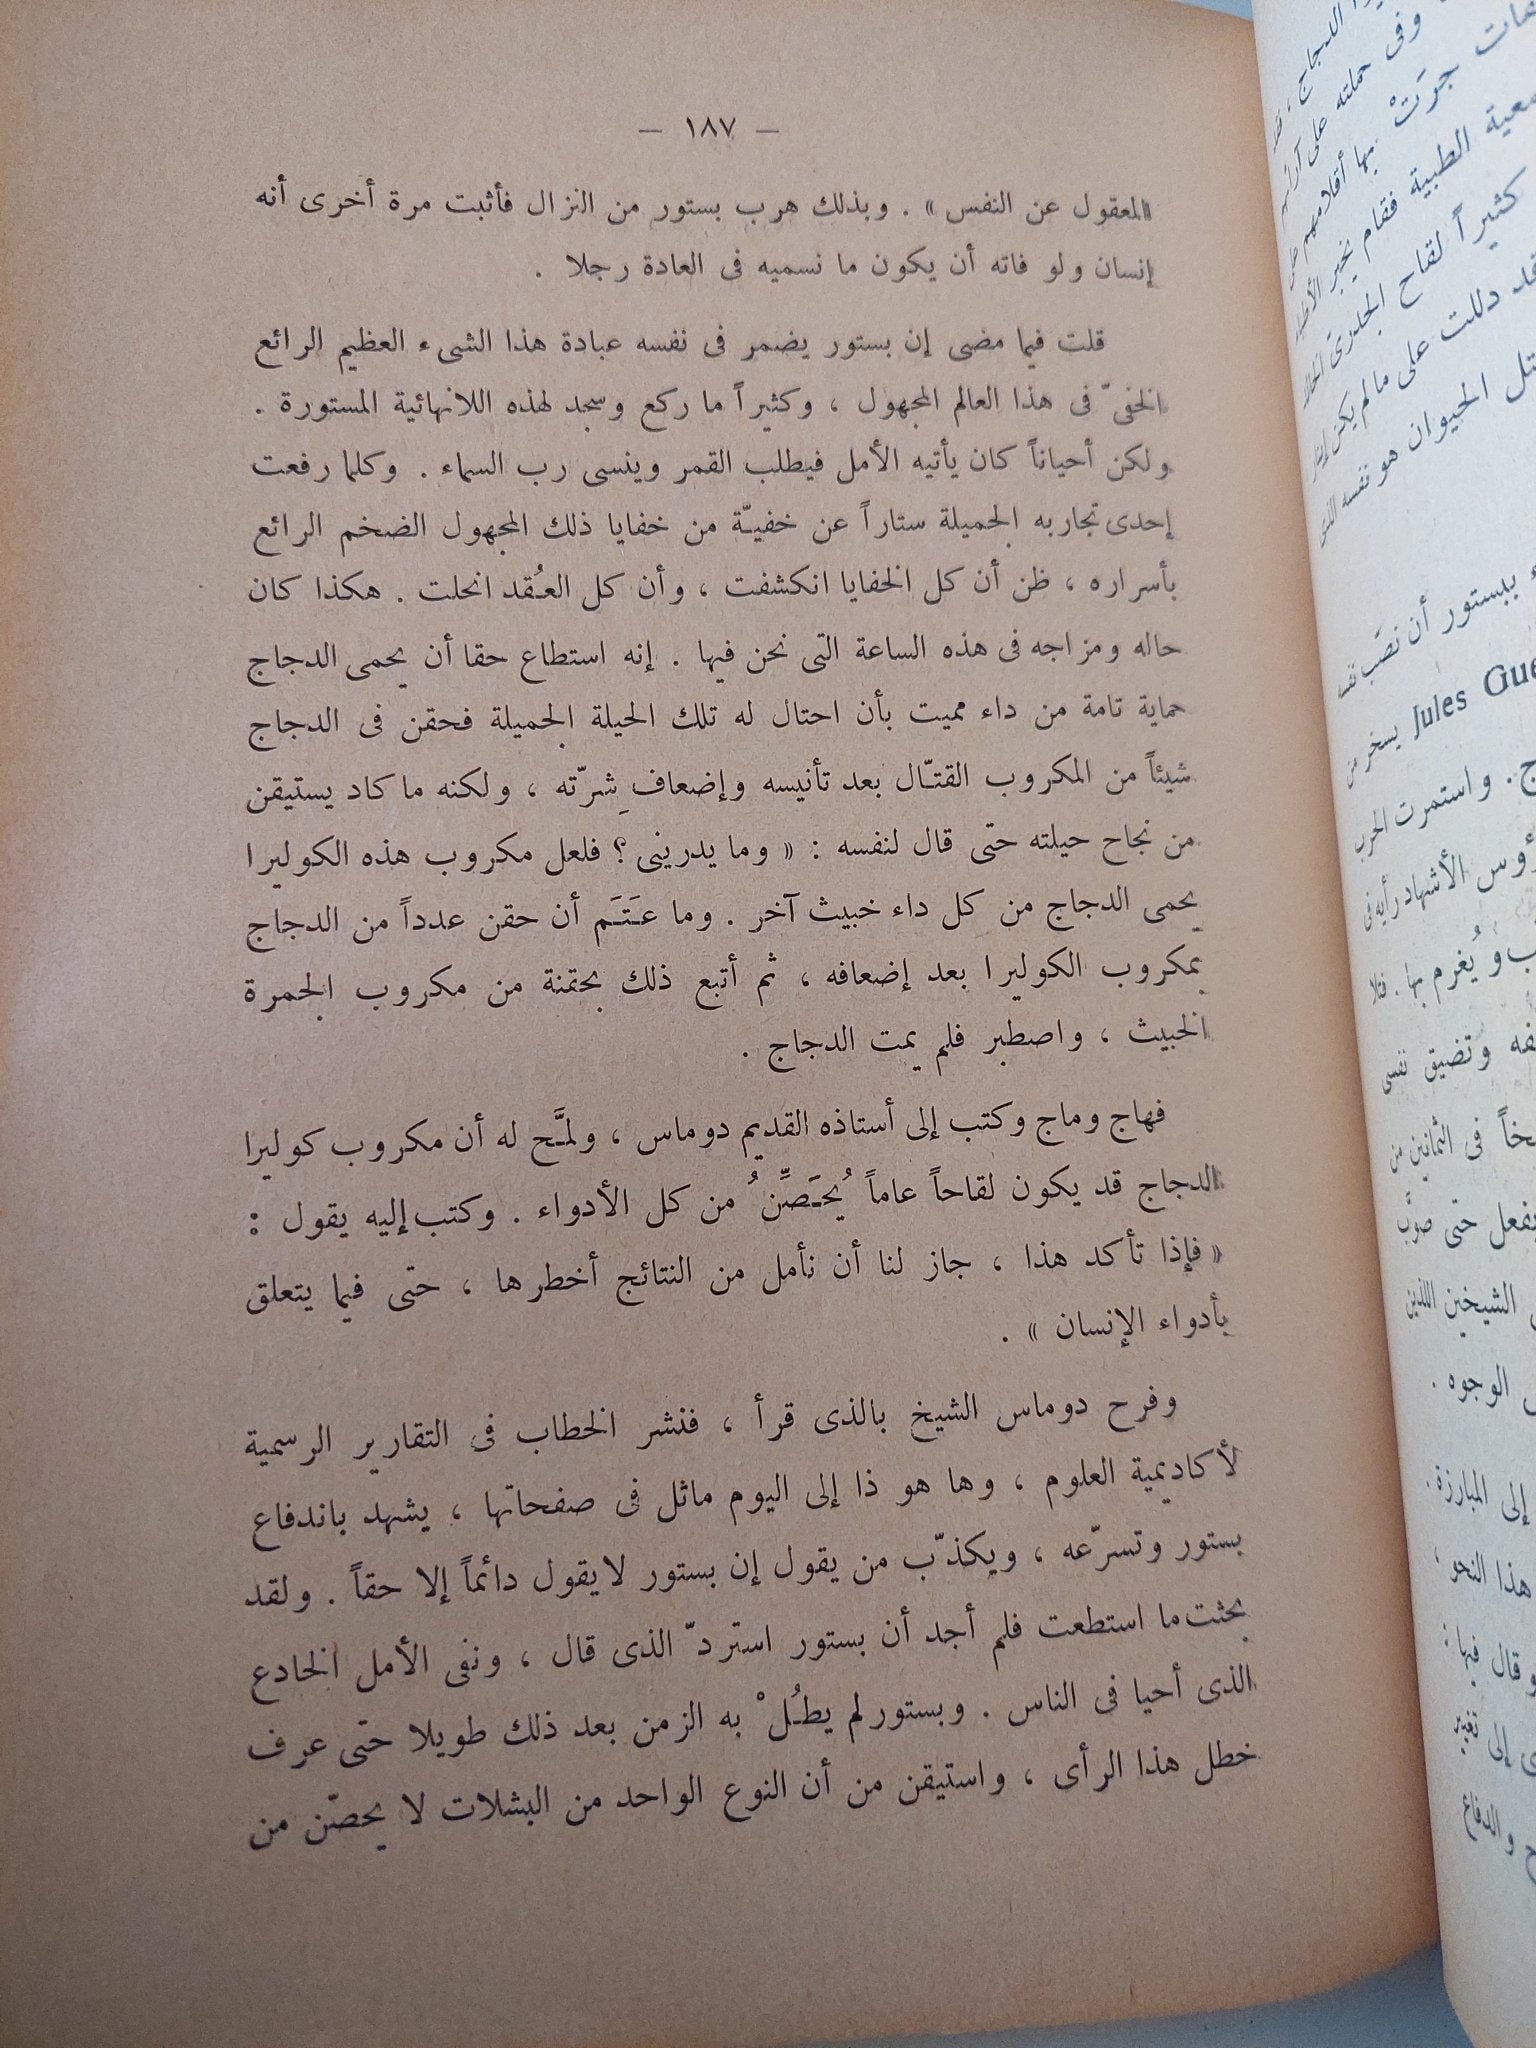 — ١٨٧ —
المعقول عن النفس » . وبذلك هرب بستور من النزال فأثبت مرة أخرى أنه
إنسان ولو فاته أن يكون ما نسميه فى العادة رجلا .
قلت فيما مضى إن بستور يضمر فى نفسه عبادة هذا الشىء العظيم الرائع
الخفىّ فى هذا العالم المجهول ، وكثيراً ما ركع وسجد لهذه اللانهائية المستورة .
ولكن أحياناً كان يأتيه الأمل فيطلب القمر وينسى رب السماء . وكلما رفعت
إحدى تجاربه الجميلة ستاراً عن خفيـّة من خفايا ذلك المجهول الضخم الرائع
بأسراره ، ظن أن كل الخفايا انكشفت ، وأن كل العـُقد انحلت . هكذا كان
حاله ومزاجه فى هذه الساعة التى نحن فيها . إنه استطاع حقا أن يحمى الدجاج
حماية تامة من داء مميت بأن احتال له تلك الحيلة الجميلة فحقن فى الدجاج
شيئاً من المكروب القتـّال بعد تأنيسه وإضعاف شِرّته ، ولكنه ما كاد يستيقن
من نجاح حيلته حتى قال لنفسه : « وما يدرينى ؟ فلعل مكروب هذه الكوليرا
يحمى الدجاج من كل داء خبيث آخر . وما عـَتـَم أن حقن عدداً من الدجاج
بمكروب الكوليرا بعد إضعافه ، ثم أتبع ذلك بحقنة من مكروب الجمرة
الخبيث ، واصطبر فلم يمت الدجاج .
فهاج وماج وكتب إلى أستاذه القديم دوماس ، ولمـَّح له أن مكروب كوليرا
الدجاج قد يكون لقاحاً عاماً يُحـَصِّنُ من كل الأدواء . وكتب إليه يقول :
« فإذا تأكد هذا ، جاز لنا أن نأمل من النتائج أخطرها ، حتى فيما يتعلق
بأدواء الإنسان » .
وفرح دوماس الشيخ بالذى قرأ ، فنشر الخطاب فى التقارير الرسمية
لأكاديمية العلوم ، وها هو ذا إلى اليوم ماثل فى صفحاتها ، يشهد باندفاع
بستور وتسرّعه ، ويكذّب من يقول إن بستور لا يقول دائماً إلا حقاً . ولقد
بحثت ما استطعت فلم أجد أن بستور استردّ الذى قال ، ونفى الأمل الخادع
الذى أحيا فى الناس . وبستور لم يطـُلْ به الزمن بعد ذلك طويلا حتى عرف
خطل هذا الرأى ، واستيقن من أن النوع الواحد من البشلات لا يحصّن من
وفى حملته على آرائهم
جرَتْ بها أقلامهم
الطبية فقام يخبر
كثيراً لقاح الجدرى
دللت على ما لم يكن
الحيوان هو نفسه
ببستور أن نصَب نفسه
Jules يسخر من
واستمرت الحرب
الأشهاد رأيه فى
ويُغرم بها .
وتضيق نفسى
فى الثمانين من
يفعل حتى صوَّب
الشيخين اللذين
الوجوه .
إلى المبارزة .
هذا النحو ،
وقال فيها :
إلى تغيير
والدفاع